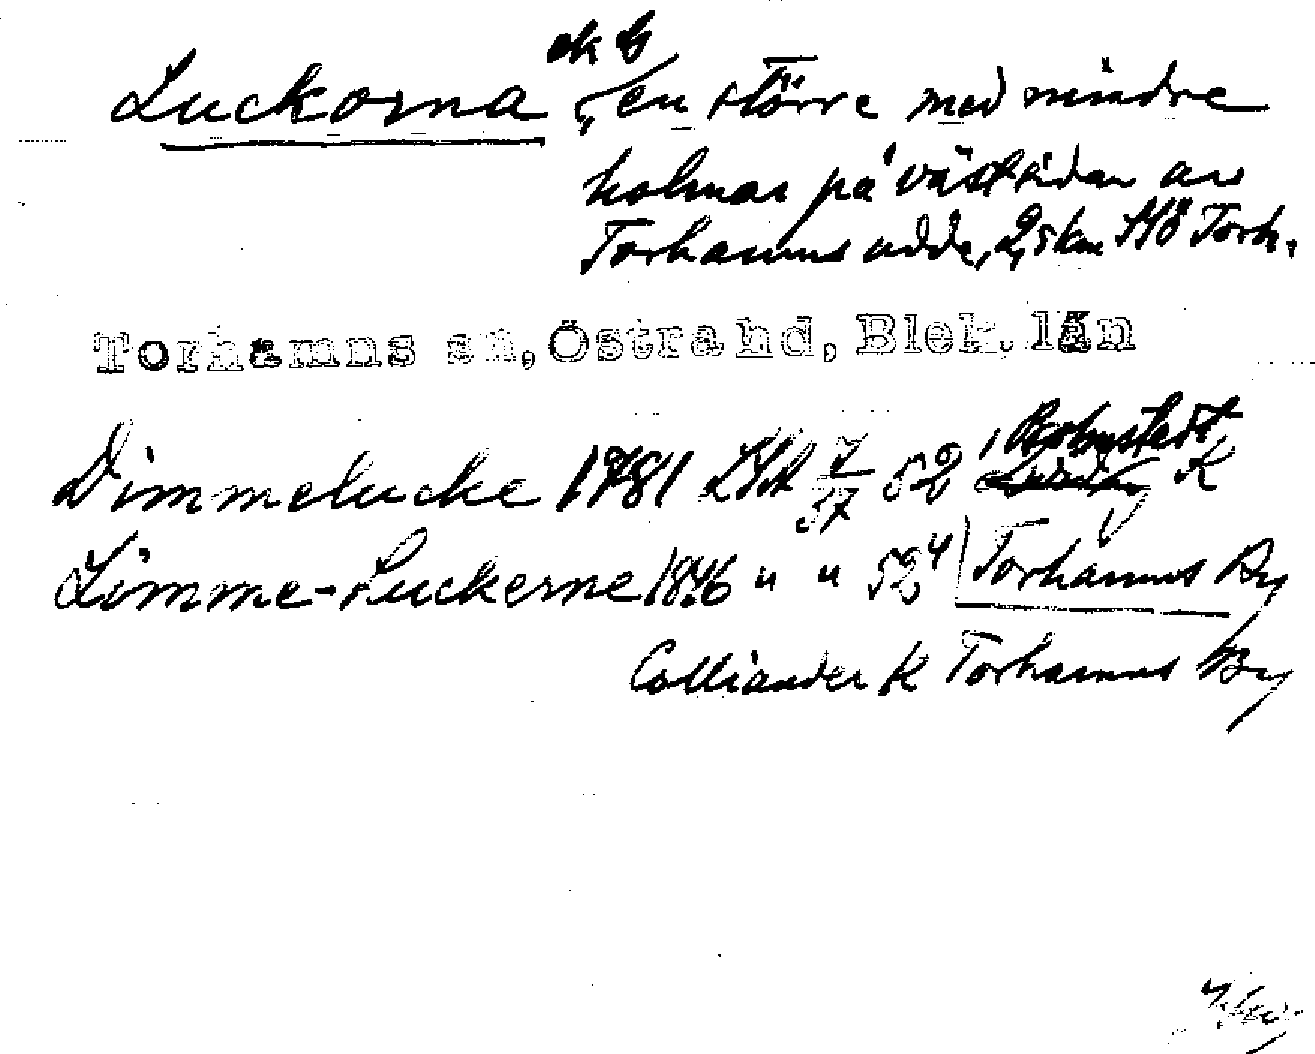 ek b
Luckorna, en större med mindre
holmar på västsidan av
Torhamns udde, 2,5 km Torh.
Torhamns sn, Östra hd, Blek. län
Dimmelucke 1781 LSA 7/37 52 K
Limme-Luckerne 1846 " " 52 4 Torhamns By
Colliander K Torhamns By